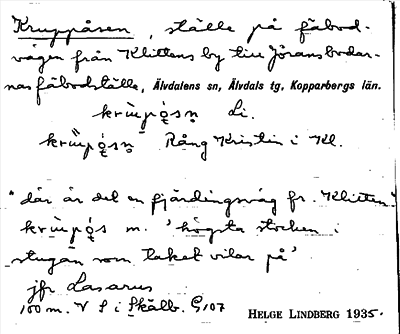 Kruppåsen, ställe på fäbod-
vägen från Klittens by till Jöransbodar-
nas fäbodställe, Älvdalens sn, Älvdals tg, Kopparbergs län.
Li.
Rång Kristin i Kl.
"där är del en fjärdingsväg fr. Klitten"
m. 'högsta stocken i
stugan som taket vilar på'
jfr Lasarus
100 m. V S i Skålb. G107
HELGE LINDBERG 1935.